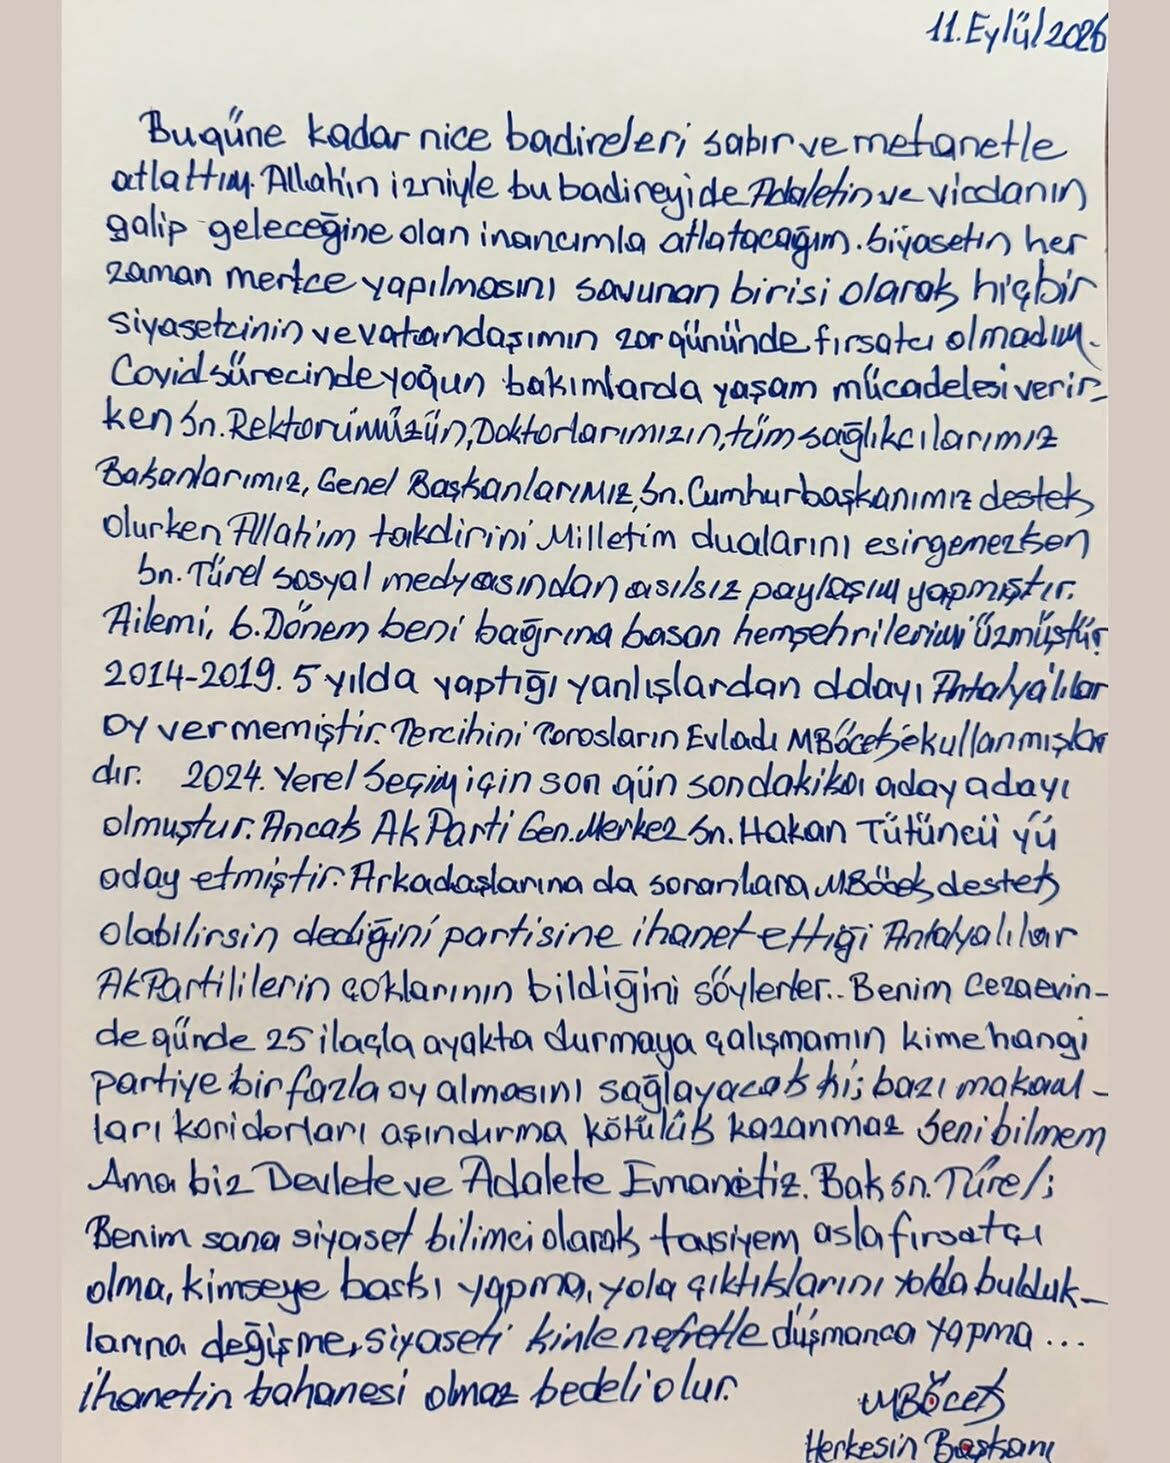 11.Eylül 2026
Bugüne kadar nice badireleri sabır ve metanetle
atlattım. Allah'ın izniyle bu badireyi de Adaletin ve vicdanın
galip geleceğine olan inancımla atlatacağım. Siyasetin her
zaman mertçe yapılmasını savunan birisi olarak hiçbir
siyasetcinin ve vatandaşımın zor gününde fırsatcı olmadım.
Covid sürecinde yoğun bakımlarda yaşam mücadelesi verir-
ken Sn. Rektörümüzün, Doktorlarımızın, tüm sağlıkcılarımız
Bakanlarımız, Genel Başkanlarımız, Sn. Cumhurbaşkanımız destek
olurken Allah'ım takdirini Milletim dualarını esirgemezken
Sn. Türel sosyal medyasından asılsız paylaşım yapmıştır.
Ailemi, 6. Dönem beni bağrına basan hemşehrilerimi üzmüştür.
2014-2019. 5 yılda yaptığı yanlışlardan dolayı Antalya'lılar
oy vermemiştir. Tercihini Torosların Evladı MBöcek'e kullanmışlar
dır. 2024. Yerel Seçim için son gün son dakika aday adayı
olmuştur. Ancak Ak Parti Gen. Merkez Sn. Hakan Tütüncü yü
aday etmiştir. Arkadaşlarına da soranlara MBöcek destek
olabilirsin dediğini partisine ihanet ettiği Antalyalılar
AkPartililerin çoklarının bildiğini söylerler.. Benim Cezaevin-
de günde 25 ilaçla ayakta durmaya çalışmamın kime hangi
partiye bir fazla oy almasını sağlayacak ki; bazı makam-
ları koridorları aşındırma kötülük kazanmaz Seni bilmem
Ama biz Devlete ve Adalete Emanetiz. Bak Sn. Türel;
Benim sana siyaset bilimci olarak tavsiyem asla fırsatçı
olma, kimseye baskı yapma, yola çıktıklarını yolda bulduk-
larına değişme, siyaseti kinle nefretle düşmanca yapma...
İhanetin bahanesi olmaz bedeli olur.
MBöcek
Herkesin Başkanı